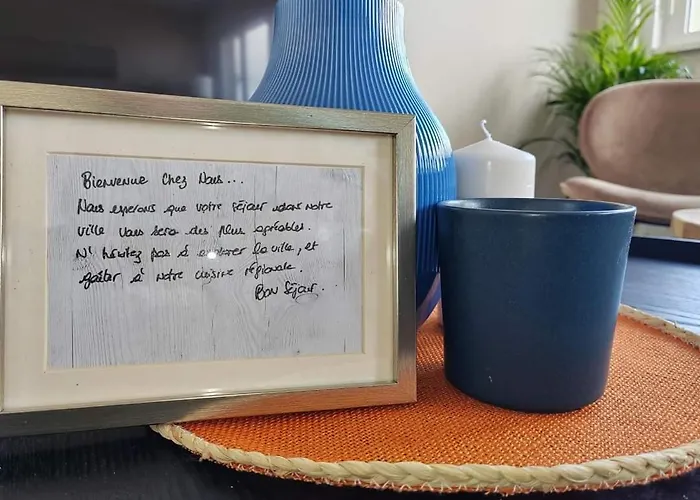 Bienvenue Chez Nous...
Nous esperons que votre séjour dans notre
ville vous sera des plus agréables.
N'hésitez pas à explorer la ville, et
goûter à notre cuisine régionale.
Bon Séjour.